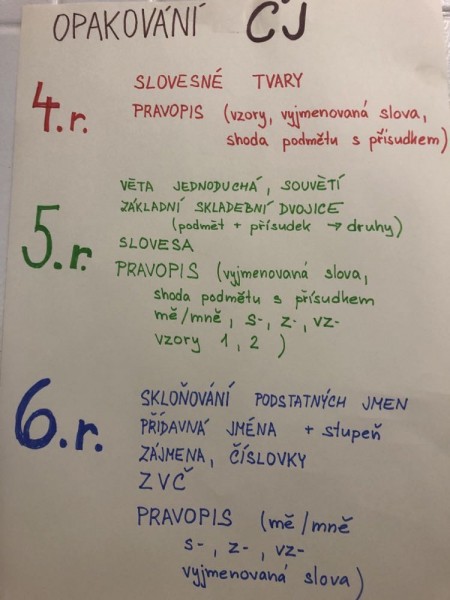 OPAKOVÁNÍ ČJ
4.r.
SLOVESNÉ TVARY
PRAVOPIS (vzory, vyjmenovaná slova,
shoda podmětu s přísudkem)
5.r.
VĚTA JEDNODUCHÁ, SOUVĚTÍ
ZÁKLADNÍ SKLADEBNÍ DVOJICE
(podmět + přísudek → druhy)
SLOVESA
PRAVOPIS (vyjmenovaná slova,
shoda podmětu s přísudkem
mě/mně, s-, z-, vz-
vzory 1, 2 )
6.r.
SKLOŇOVÁNÍ PODSTATNÝCH JMEN
PŘÍDAVNÁ JMÉNA + stupeň
ZÁJMENA, ČÍSLOVKY
ZVČ
PRAVOPIS (mě/mně
s-, z-, vz-
vyjmenovaná slova)